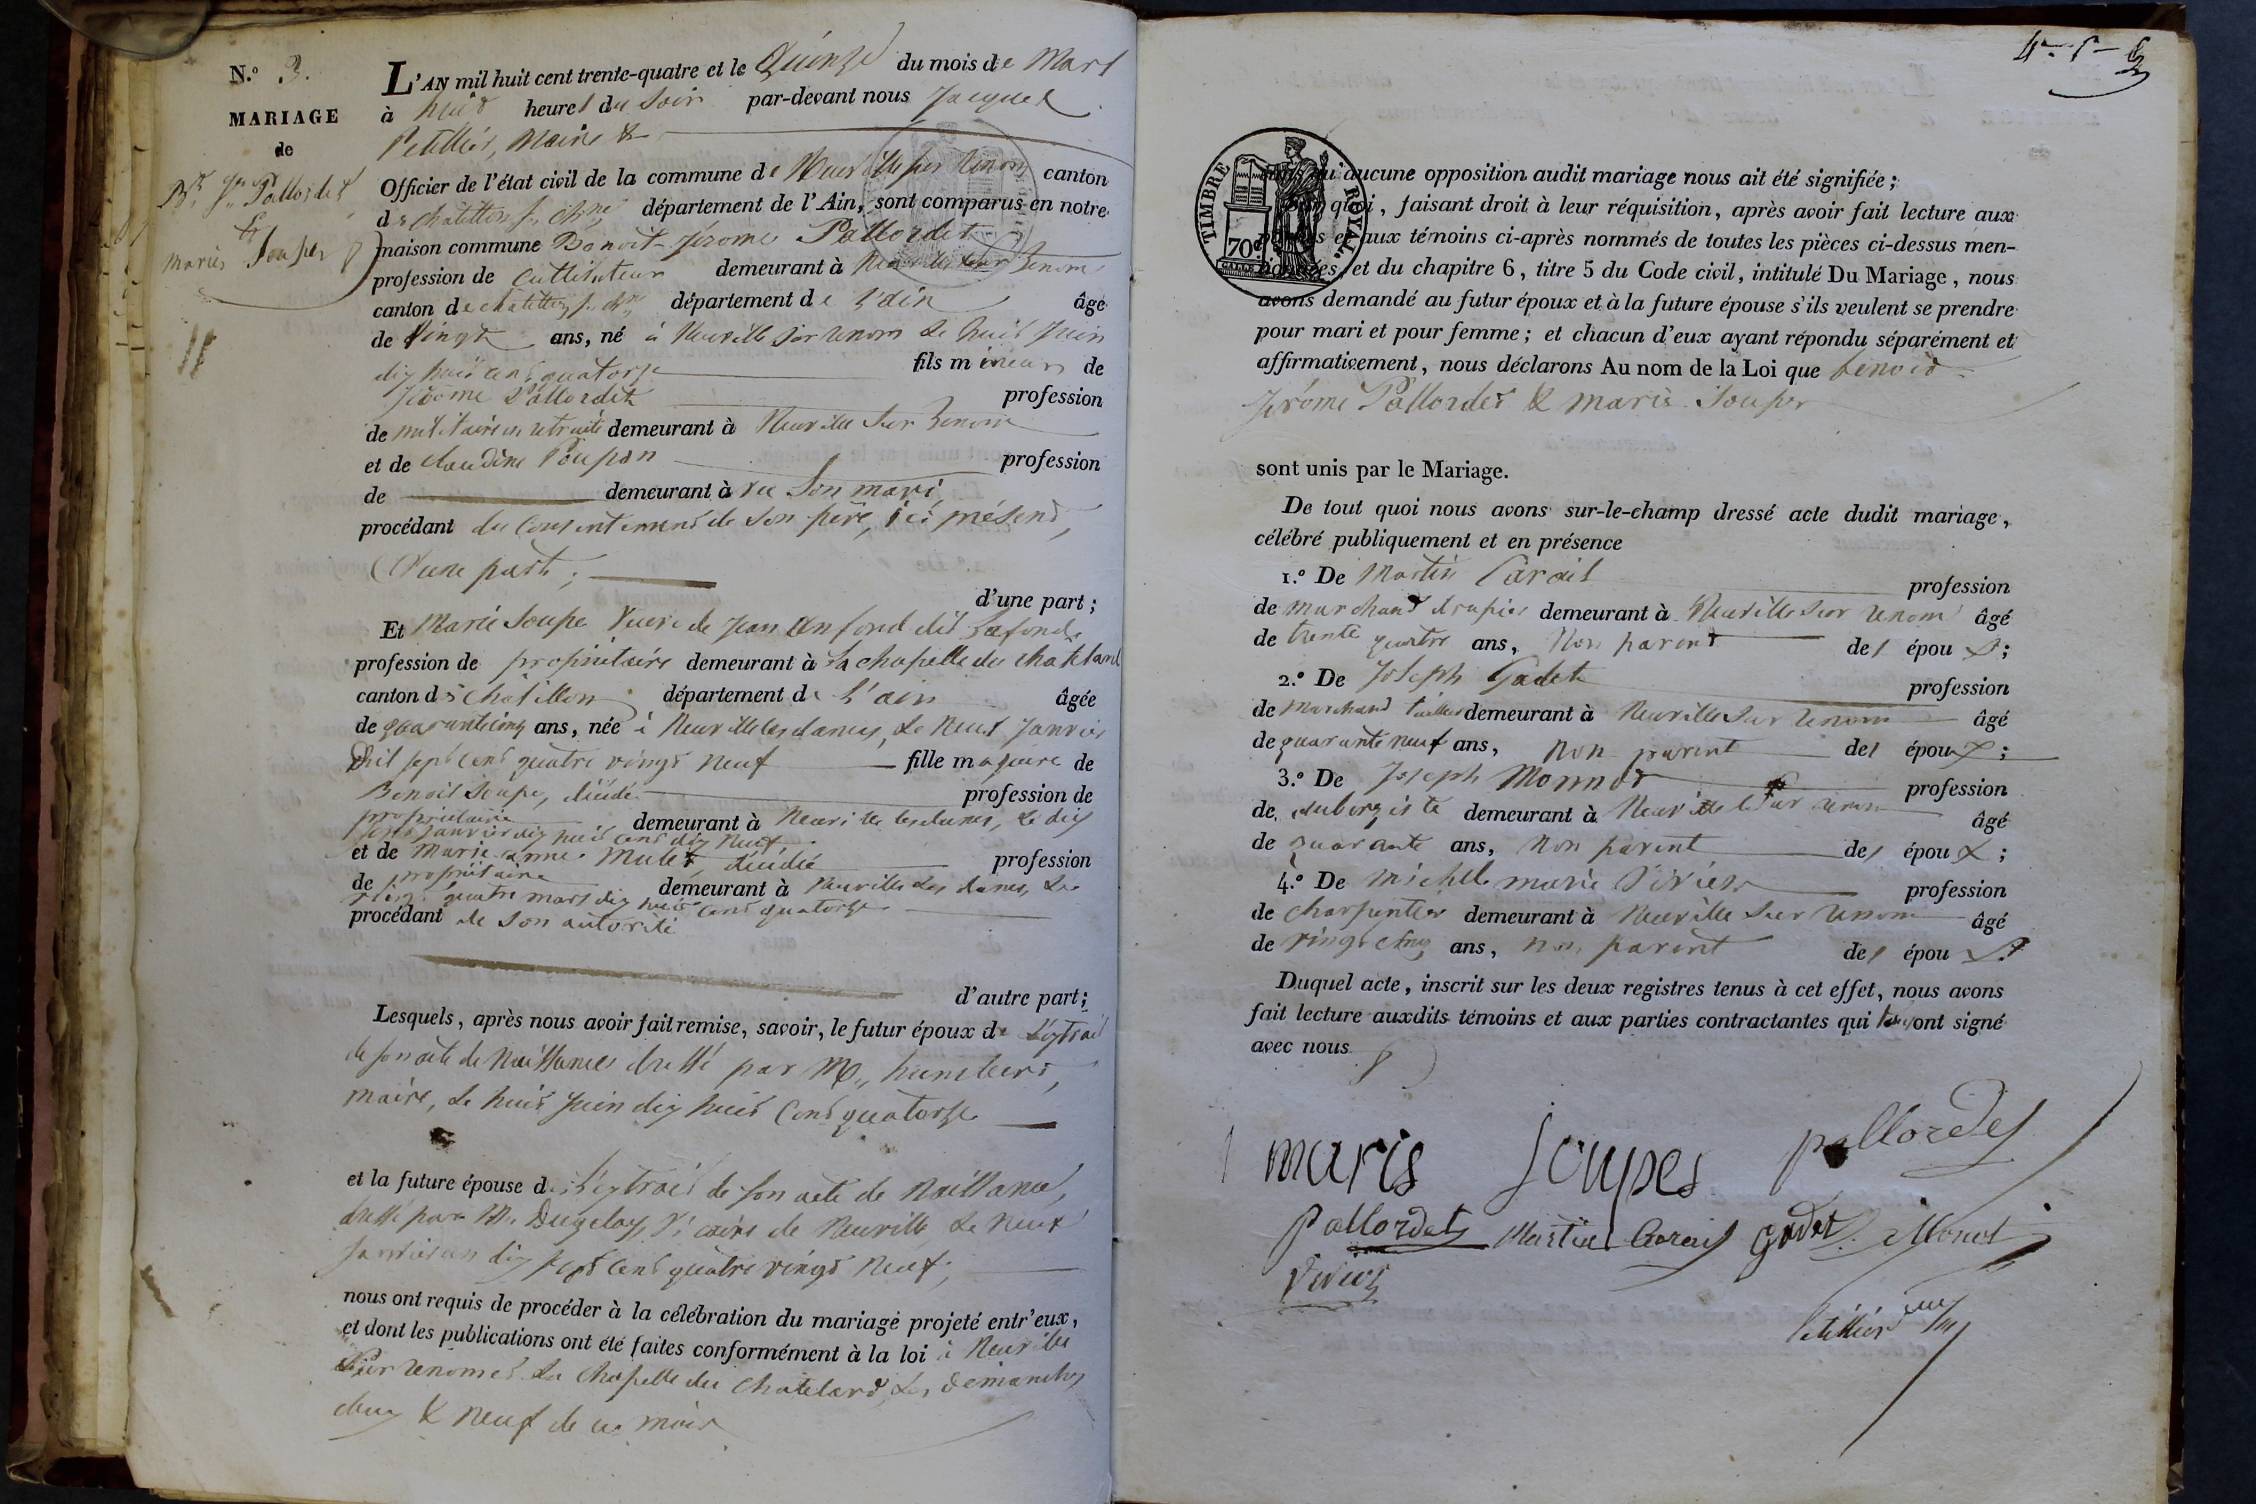 N.º 3.
MARIAGE
de
Bt Jme Pallordet
&
Marie Soupe
L'AN mil huit cent trente-quatre et le Quinze du mois de Mars
à huit heures du Soir par-devant nous Jacques
Petillier, Maire &
Officier de l'état civil de la commune de Neuville sur Renom canton
de chatillon s. chne département de l'Ain, sont comparus en notre
maison commune Benoit Jérome Pallordet
profession de cultivateur demeurant à Neuville sur Renom
canton de chatillon s. chne département de l'ain âgé
de Vingt ans, né à Neuville sur renom le huit Juin
dix huit cent quatorze fils mineur de
Jérome Pallordet profession
de militaire en retraite demeurant à Neuville sur Renom
et de claudine Poupon profession
de demeurant à son mari
procédant du consentement de son père, ici présent,
d'une part;
d'une part ;
Et Marie Soupe Veuve de Jean dit Lafond
profession de propriétaire demeurant à la chapelle du chatelard
canton de chatillon département de l'ain âgée
de quarante cinq ans, née à Neuville les dames, le neuf Janvier
mil sept cent quatre vingt neuf fille majeure de
Benoit Soupe, décédé profession de
propriétaire demeurant à Neuville les dames, le dix
sept Janvier dix huit cent dix neuf
et de Marie anne Mulet, décédée profession
de propriétaire demeurant à Neuville les dames, le
vingt quatre mars dix huit cent quatorze
procédant de son autorité
d'autre part ;
Lesquels, après nous avoir fait remise, savoir, le futur époux de l'extrait
de son acte de Naissance dressé par Mr humbert,
maire, le huit Juin dix huit cent quatorze
et la future épouse de l'extrait de son acte de Naissance,
dressé par Mr. Vicaire de Neuville, le neuf
Janvier an dix sept cent quatre vingt neuf,
nous ont requis de procéder à la célébration du mariage projeté entr'eux,
et dont les publications ont été faites conformément à la loi à Neuville
sur renom et La Chapelle du Chatelard, les dimanches
deux & neuf de ce mois
TIMBRE ROYAL
70c
qu'aucune opposition audit mariage nous ait été signifiée ;
quoi, faisant droit à leur réquisition, après avoir fait lecture aux
et aux témoins ci-après nommés de toutes les pièces ci-dessus men-
tionnées, et du chapitre 6, titre 5 du Code civil, intitulé Du Mariage, nous
avons demandé au futur époux et à la future épouse s'ils veulent se prendre
pour mari et pour femme ; et chacun d'eux ayant répondu séparément et
affirmativement, nous déclarons Au nom de la Loi que benoit
Jérôme Pallordet & marie Soupe
sont unis par le Mariage.
De tout quoi nous avons sur-le-champ dressé acte dudit mariage,
célébré publiquement et en présence
1.º De Martin Carail profession
de marchand drapier demeurant à Neuville sur renom âgé
de trente quatre ans, Non parent des époux ;
2.º De Joseph Gadet profession
de Marchand tailleur demeurant à Neuville sur renom âgé
de quarante neuf ans, non parent des époux ;
3.º De Joseph Monnot profession
de aubergiste demeurant à Neuville sur renom âgé
de quarante ans, Non parent des époux ;
4.º De Michel marie Vivier profession
de charpentier demeurant à Neuville sur renom âgé
de vingt cinq ans, non parent des époux
Duquel acte, inscrit sur les deux registres tenus à cet effet, nous avons
fait lecture auxdits témoins et aux parties contractantes qui tous ont signé
avec nous
marie Soupe pallordet
Pallordet Martin Carail Gadet J. Monot
Vivier
Petillier